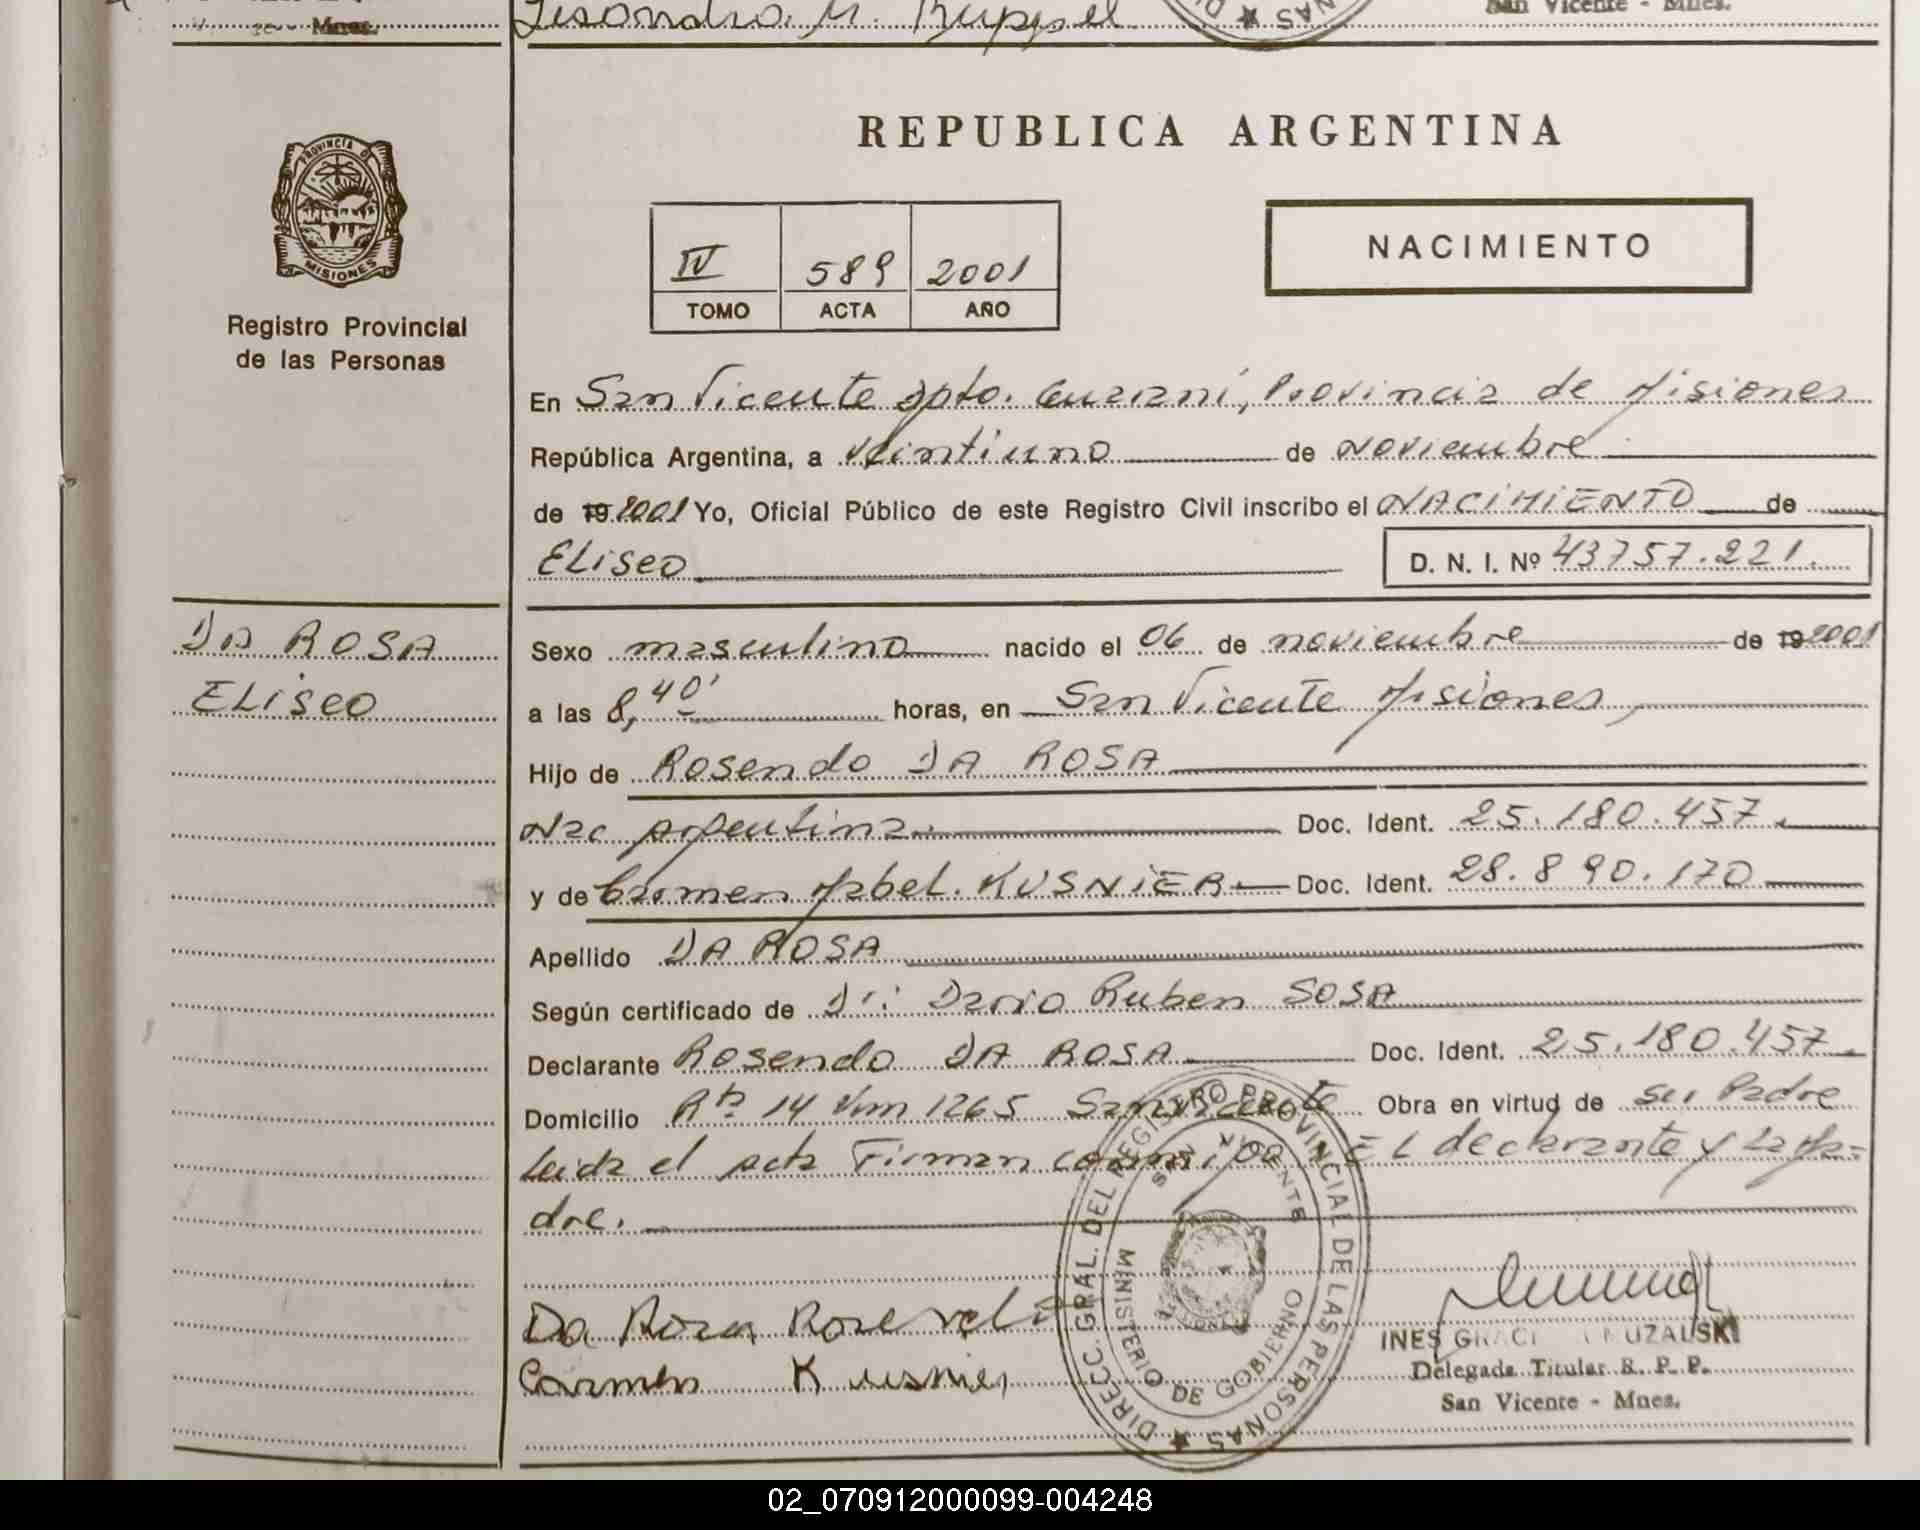 Mnes.
Lisandro. M. Kuppel
San Vicente - Mnes.
REPUBLICA ARGENTINA
PROVINCIA D
MISIONES
Registro Provincial
de las Personas
IV 589 2001
TOMO ACTA AÑO
NACIMIENTO
En San Vicente Dpto. Guaraní, Provincia de Misiones
República Argentina, a veintiuno de noviembre
de 19 2001 Yo, Oficial Público de este Registro Civil inscribo el NACIMIENTO de
ELiseo D. N. I. Nº 43757.221.
DA ROSA
ELiseo
Sexo masculino nacido el 06 de noviembre de 19 2001
a las 8,40' horas, en San Vicente Misiones,
Hijo de Rosendo DA ROSA
Nac Argentina. Doc. Ident. 25.180.457.
y de Carmen Mabel. KUSNiER Doc. Ident. 28.890.170
Apellido DA ROSA
Según certificado de Dr: Dario Ruben SOSA
Declarante Rosendo DA ROSA Doc. Ident. 25.180.457.
Domicilio Rta 14 Km 1265 San Vicente Obra en virtud de su Padre
Leida el acta Firman conmigo EL declarante y La Ma-
dre.
Da Rosa
Carmen Kusnier
DIRECC. GRAL. DEL REGISTRO PROVINCIAL DE LAS PERSONAS
SAN VICENTE
MINISTERIO DE GOBIERNO
INES GRACI MUZALSKI
Delegada Titular R. P. P.
San Vicente - Mnes.
02_070912000099-004248